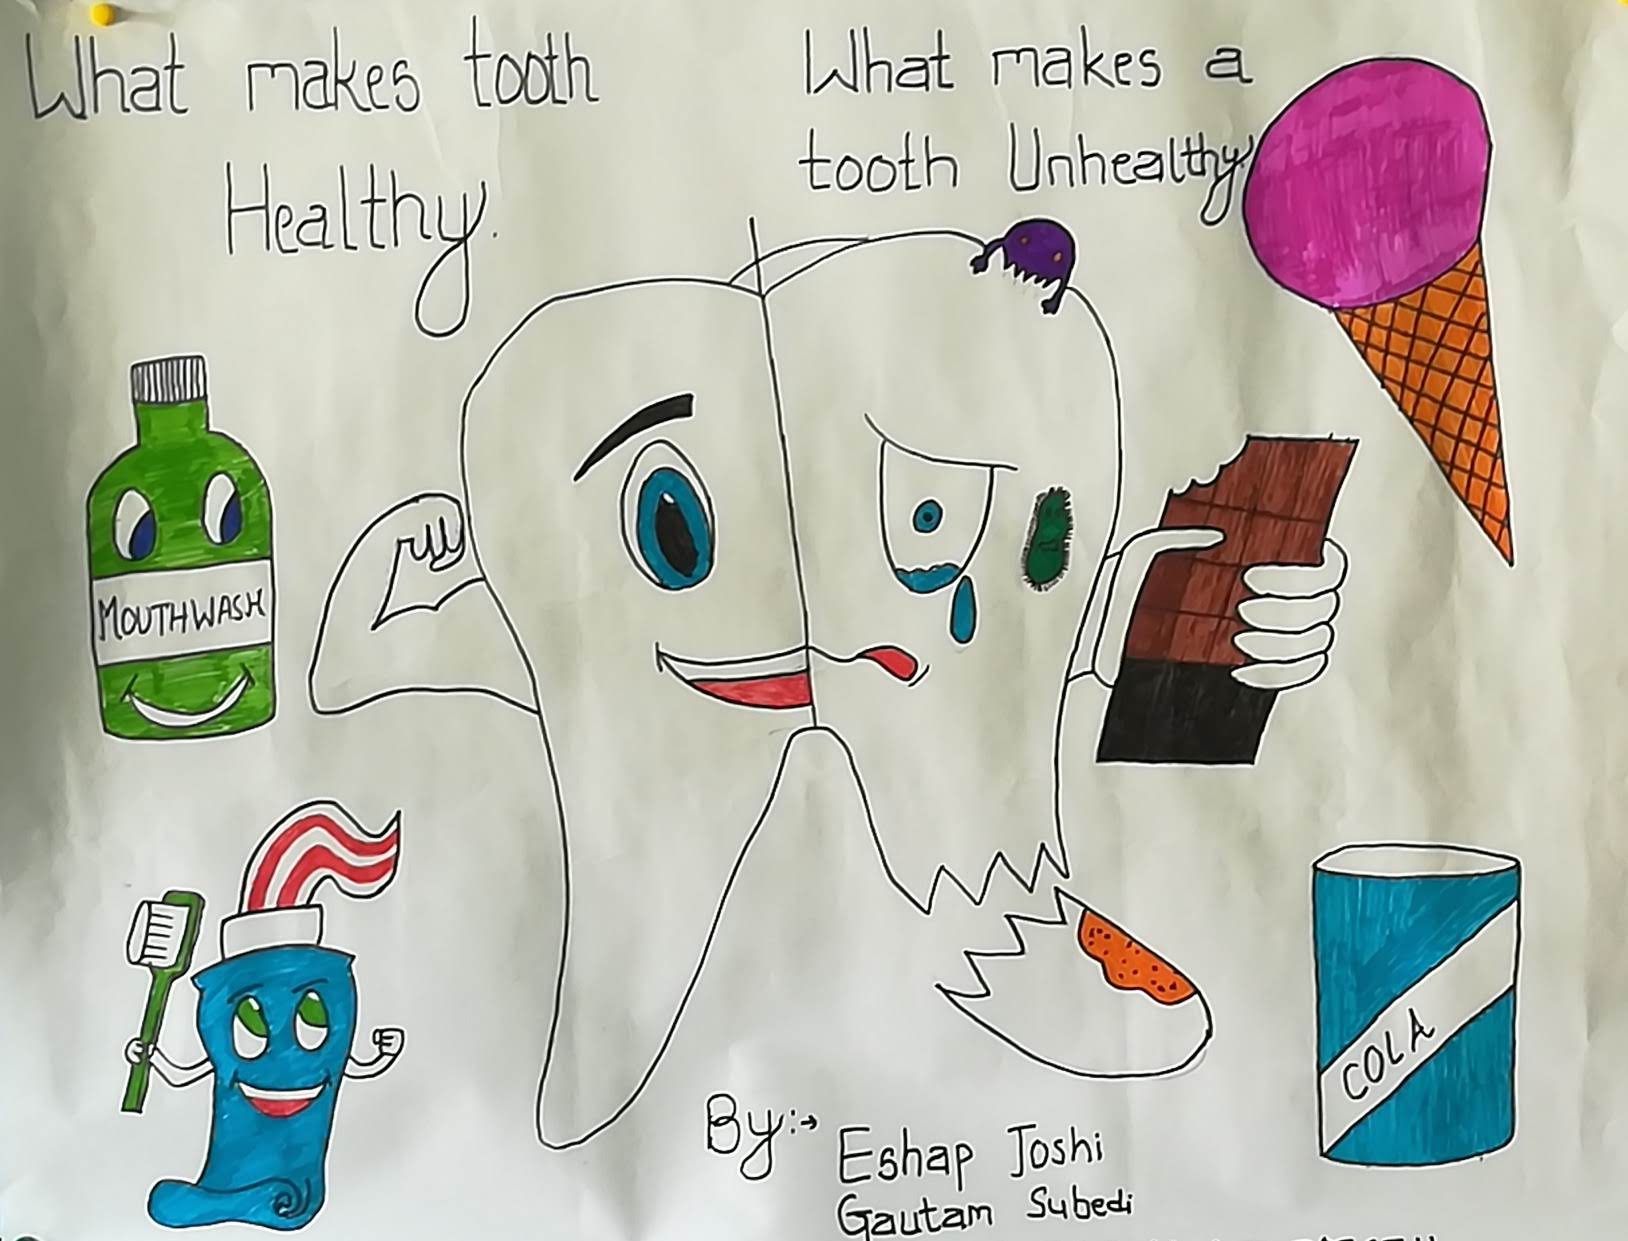 What makes tooth
Healthy.
What makes a
tooth Unhealthy
MOUTHWASH
COLA
By:→
Eshap Joshi
Gautam Subedi